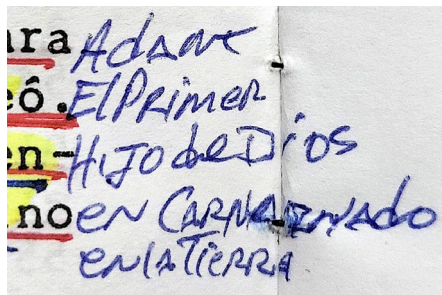 ara Adan
eô. El PRimER
en- HIJO de Dios
ino eN CARNe
en la TIERRA